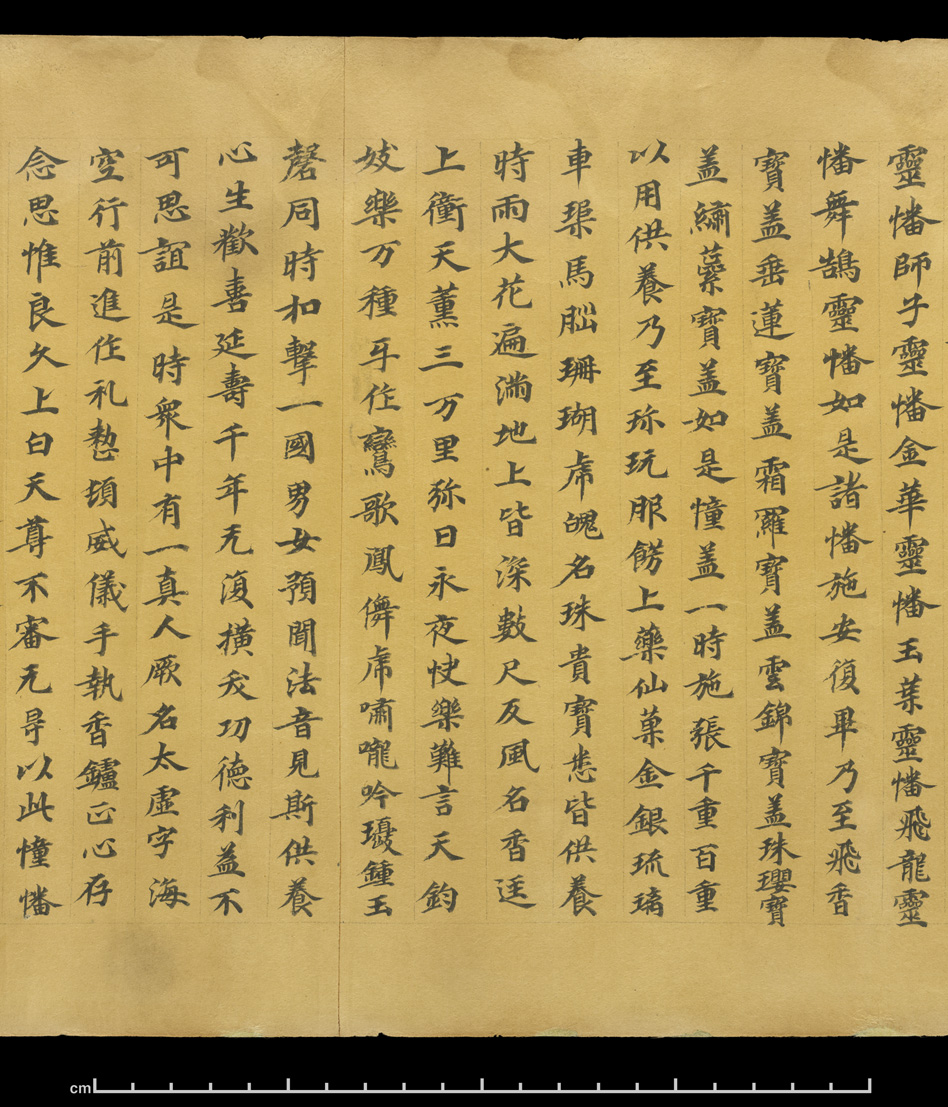 靈幡師子靈幡金華靈幡玉葉靈幡飛龍靈
幡舞鵠靈幡如是諸幡施安復畢乃至飛香
寶盖垂蓮寶盖霜羅寶盖雲錦寶盖珠瓔寶
盖繡蘂寶盖如是幢盖一時施張千重百重
以用供養乃至珎玩服餝上藥仙菓金銀琉璃
車璖馬瑙珊瑚虎魄名珠貴寶悉皆供養
時雨大花遍滿地上皆深數尺反風名香逆
上衝天薰三万里弥日永夜快樂難言天鈞
妓樂万種牙作鸞歌鳳儛虎嘯嚨吟瓇鍾玉
磬同時扣擊一國男女預聞法音見斯供養
心生歡喜延壽千年无復横夭功德利益不
可思誼是時衆中有一真人厥名太虛字海
空行前進作礼整頓威儀手執香鑪正心存
念思惟良久上白天尊不審无㝵以此幢幡